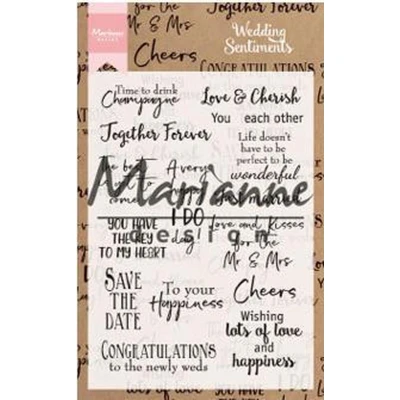 Together Forever
for the
Mr & Mrs
Cheers
CONGRATULATIONS
Marianne
Wedding
Sentiments
Time to drink
Champagne
Love & Cherish
You each other
Together Forever
Life doesn't
have to be
perfect to be
wonderful
A very
Marianne
design
I DO
day
YOU HAVE
THE KEY
TO MY HEART
Love and Kisses
for the
Mr & Mrs
SAVE
THE
DATE
To your
Happiness
Cheers
Wishing
lots of love
and
happiness
CONGRATULATIONS
to the newly weds